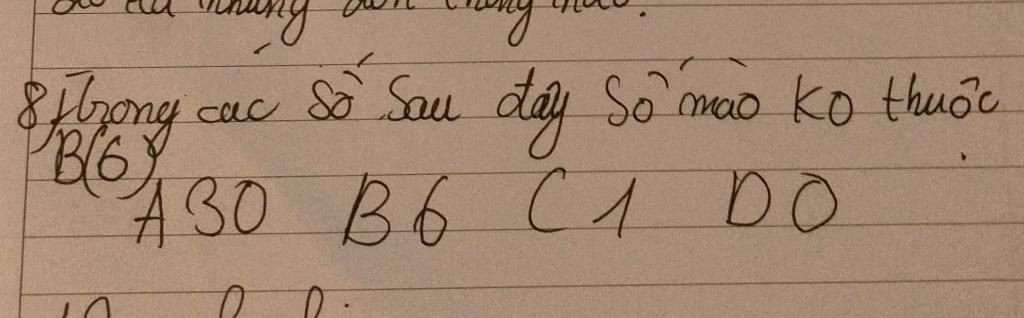 8) Trong các số sau đây số mào ko thuộc
B(6)
A 30 B 6 C 1 D 0